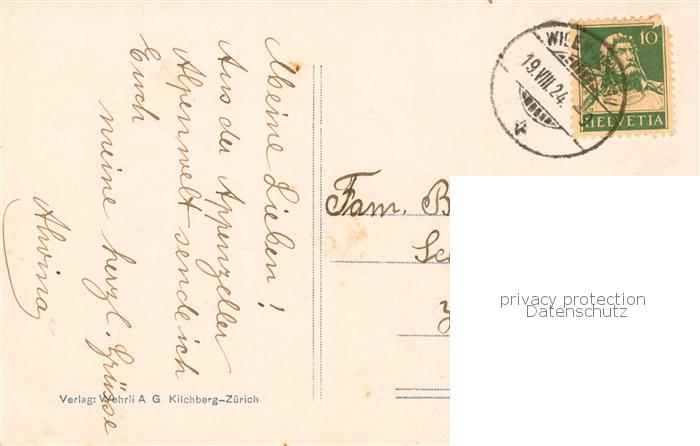 Meine Lieben!
Aus der Appenzeller
Alpenwelt sende ich
Euch
meine herzl. Grüsse
Alwina
Verlag: Wehrli A G. Kilchberg-Zürich
19.VIII.24.
10
HELVETIA
Fam. B
privacy protection
Datenschutz